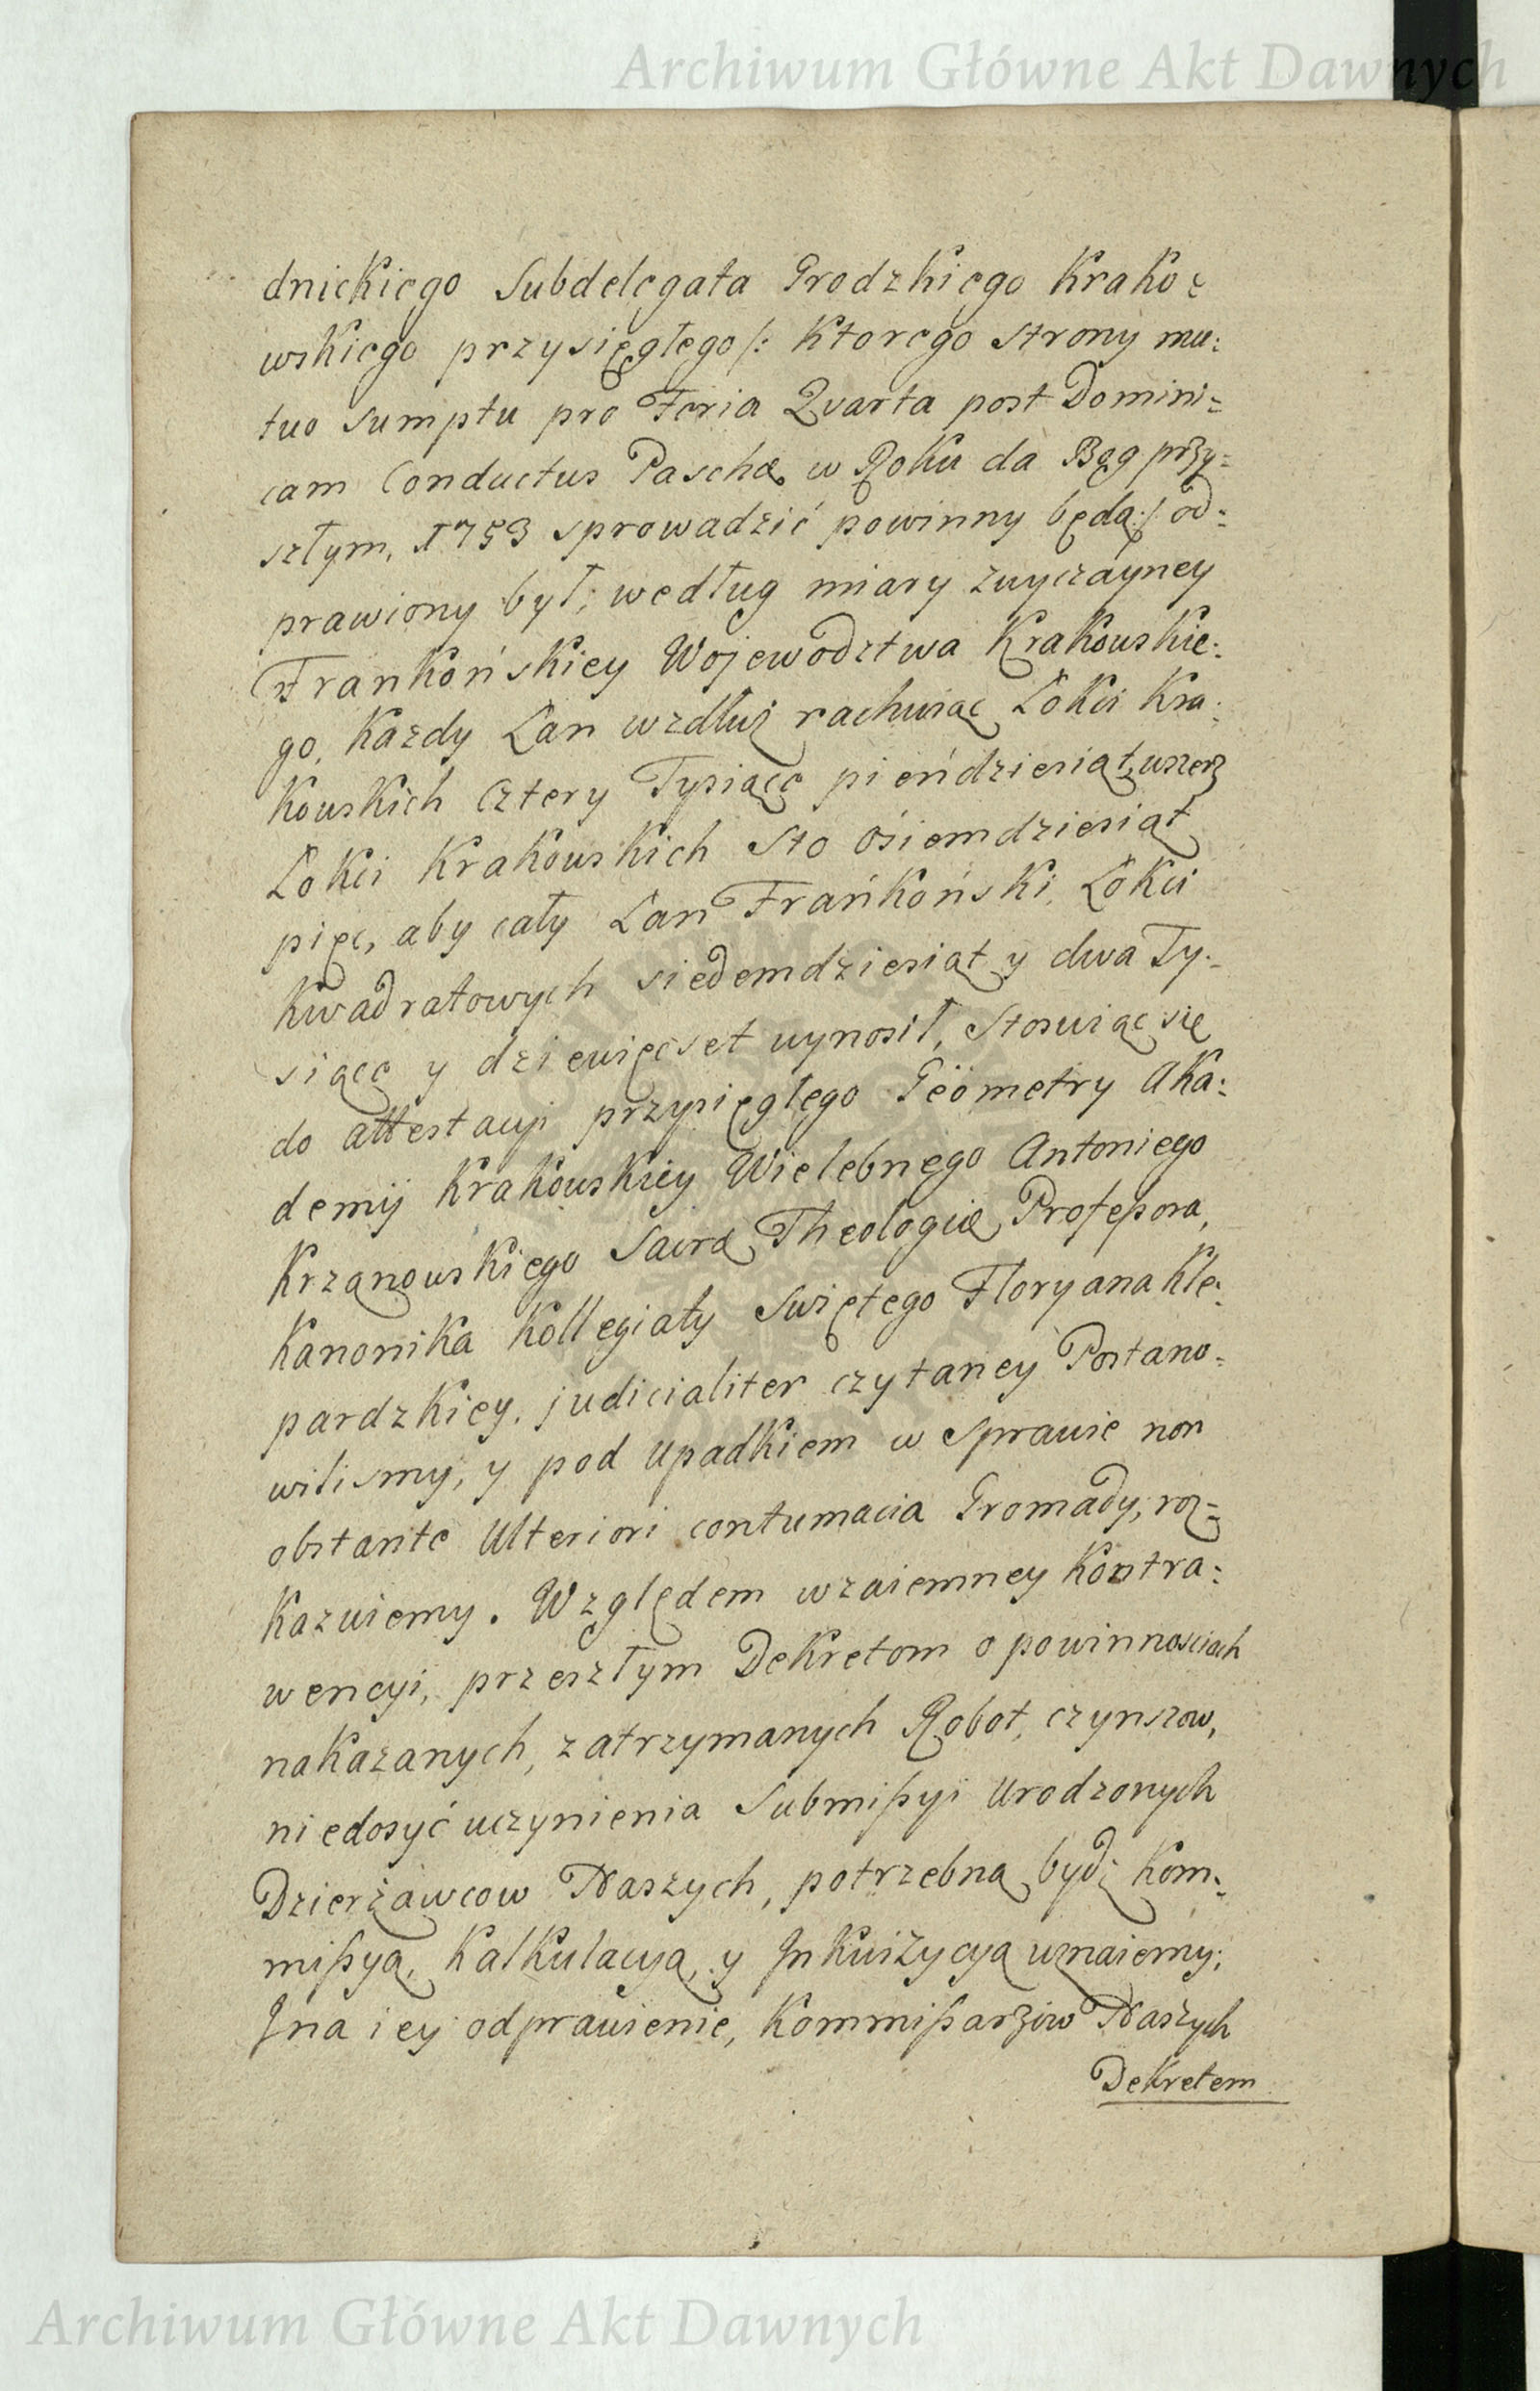 Archiwum Główne Akt Dawnych
dnickiego Subdelegata Grodzkiego Krako:
wskiego przysięgłego /: ktorego strony mu:
tuo sumptu pro Feria Qvarta post Domini:
cam Conductus Paschæ w Roku da Bog przy:
szłym, 1753 sprowadzić powinny będą :/ od:
prawiony był; według miary zwyczayney
Frankońskiey Wojewodztwa Krakowskie:
go, każdy Łan wzdłuż rachuiąc Łokci Kra:
kowskich cztery Tysiące pieńdziesiąt, wszerz
Łokci Krakowskich Sto ośiemdziesiąt
pięc, aby cały Łan Frańkoński, Łokci
kwadratowych siedemdziesiąt y dwa Ty:
siące y dziewięcset wynosił, Stosuiąc się
do attestacyi przysięgłego Geömetry Aka:
demij Krakowskiey Wielebnego Antoniego
Krzanowskiego Sacræ Theologiæ Professora,
Kanonika Kollegiaty Swiętego Floryana Kle:
pardzkiey, judicialiter czytaney Postano:
wilismy, y pod upadkiem w Sprawie non
obstante Ulteriori contumacia Gromady, roz:
kazuiemy. Względem wzaiemney Kontra:
wencyi, przeszłym Dekretom o powinnosciach
nakazanych, zatrzymanych Robot, czynszow,
niedosyć uczynienia Submissyi Urodzonych
Dzierżawcow Naszych, potrzebną bydź Kom:
missyą, Kalkulacyą, y Inkwiżycyą uznaiemy;
Ina iey odprawienie, Kommissarzow Naszych
Dekretem
Archiwum Główne Akt Dawnych